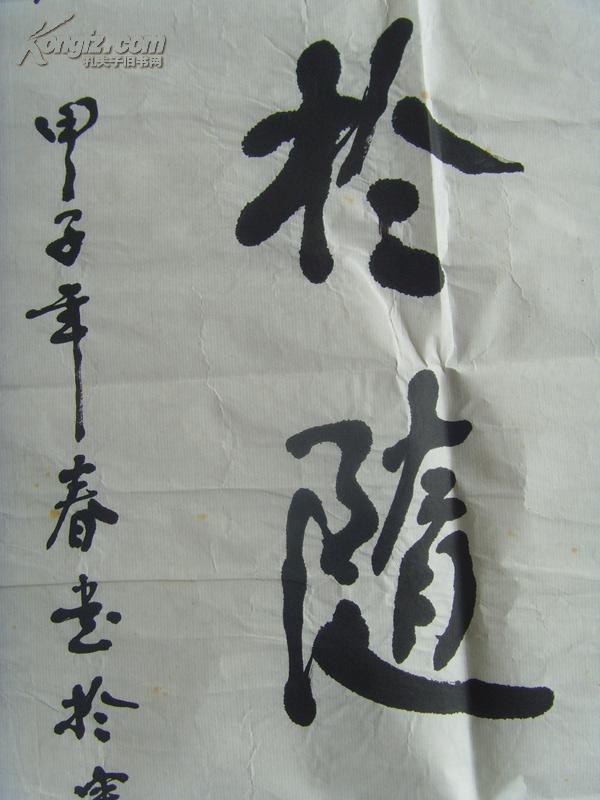 於随
甲子年春书於
Kongfz.com
孔夫子旧书网